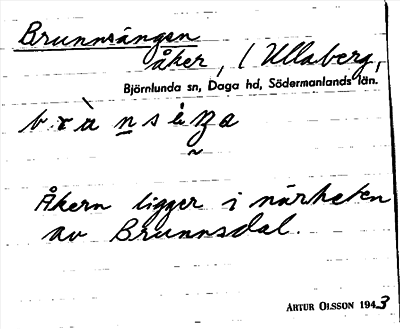 Brunnsängen
åker, / Ullaberg,
Björnlunda sn, Daga hd, Södermanlands län.
Åkern ligger i närheten
av Brunnsdal.
ARTUR OLSSON 1943